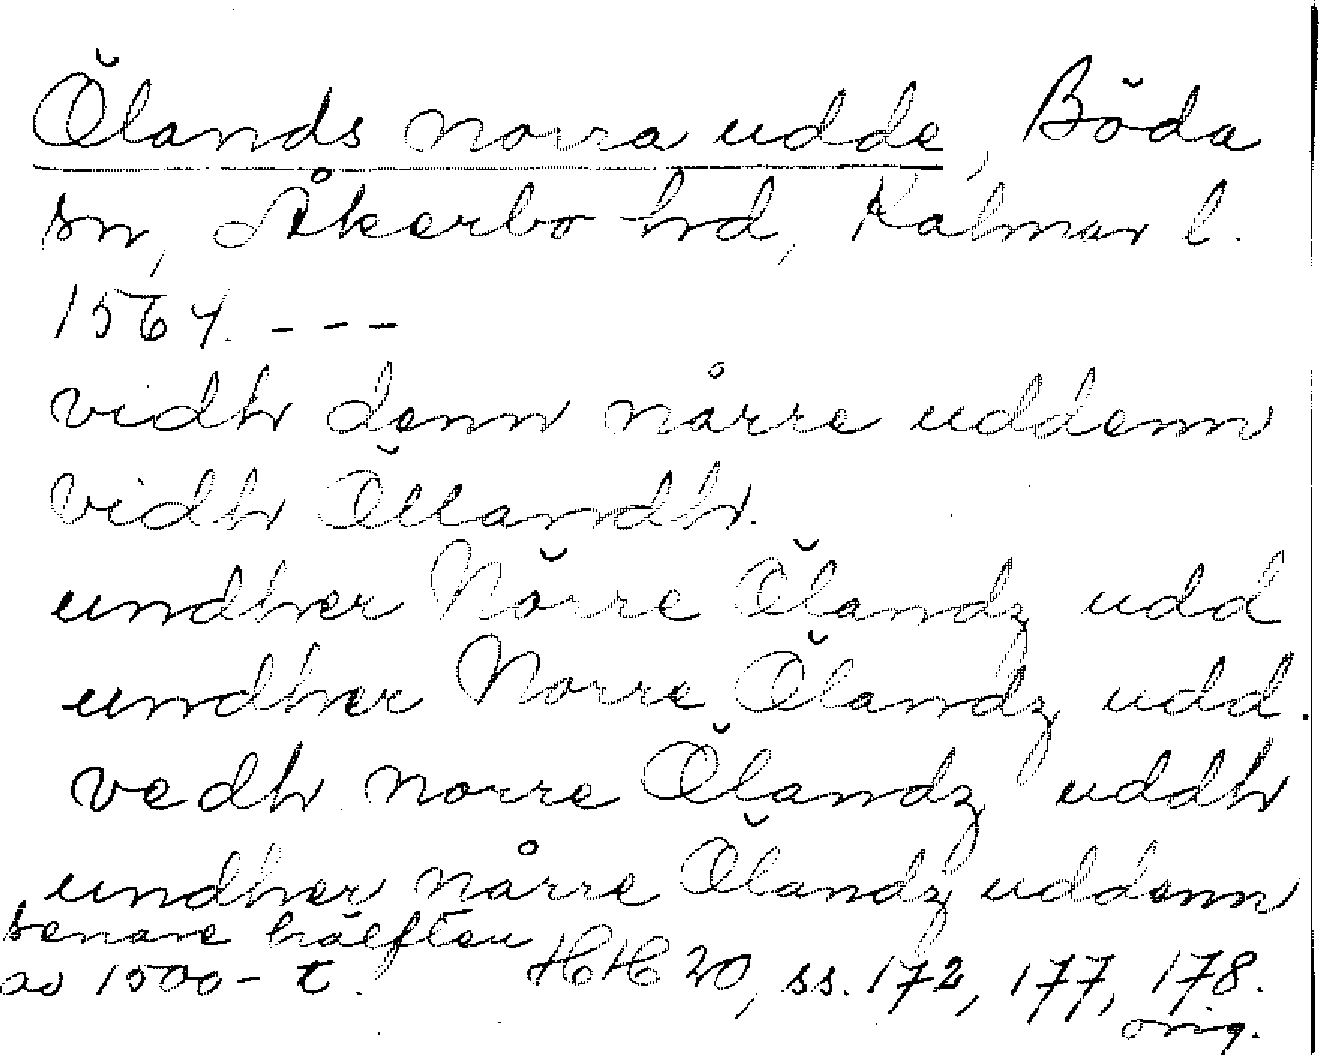 Ölands norra udde, Böda
sn, Åkerbo hd, Kalmar l.
1564. ---
vidh denn nårre uddenn
vidh Öllandh.
undher Nörre Ölandz udd
undher Norre Ölandz udd.
vedh norre Ölandz uddh
undher nårre Ölandz uddenn
senare hälften
av 1500-t. HH 20, ss. 172, 177, 178.
orig.